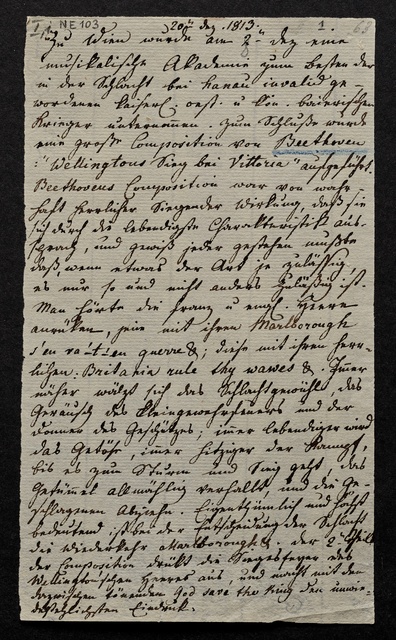 I. NE 103 20ten Dez. 1813. 1.
Zu Wien wurde am 8ten Dez eine
musikalische Akademie zum Besten der
in der Schlacht bei Hanau invalid ge-
wordenen kaiserl. oest. u. kön. baierischen
Krieger unternommen. Zum Schluße wurde
eine große Composition von Beethoven
: "Wellingtons Sieg bei Vittoria" aufgeführt.
Beethovens Composition war von wahr-
haft herrlicher siegender Wirkung, daß sie
sich durch die lebendigste Charakteristik aus-
sprach, und gewiß jeder gestehen mußte
daß wenn etwas der Art je zulässig,
es nur so und nicht anders zuläßig ist.
Man hörte die franz u engl. Heere
anrüken, jene mit ihren Marlborough
s'en va-t-en guerre &; diese mit ihren herr-
lichen: Britania rule thy wawes &. Immer
näher wälzt sich das Schlachtgewühl, das
Geräusch des Kleingewehrfeuers und der
Donner des Geschützes; immer lebendiger wird
das Getöse, immer hitziger der Kampf,
bis es zum Sturm und Sieg geht, das
Getümmel allmählig verhallt, und die Ge-
schlagenen abziehn. Eigenthümlich und höchst
bedeutend ist bei der Entscheidung der Schlacht
die Wiederkehr Marlboroughs. Der 2te Theil
der Composition drükt die Siegesfeyer des
Wellingtonschen Heeres aus, und macht mit dem
dazwischen tönenden God save the King den unwie-
derstehlichsten Eindruck.